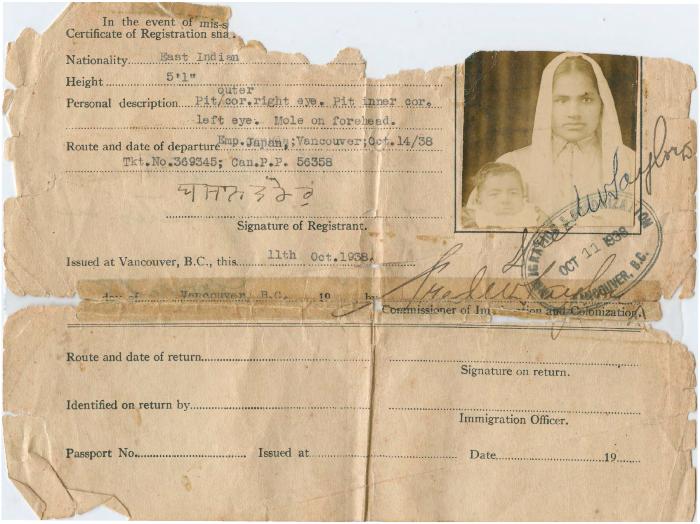 In the event of mis-s
Certificate of Registration sha
Nationality East Indian
Height 5'1"
outer
Personal description Pit/cor.right eye. Pit inner cor.
left eye. Mole on forehead.
Route and date of departure Emp.Japan;Vancouver;Oct.14/38
Tkt.No.369345; Can.P.P. 56358
Signature of Registrant.
Issued at Vancouver, B.C., this 11th Oct.1938.
Vancouver, B.C. 19
Commissioner of Im and Colonization.
OCT 11 1938
VANCOUVER, B.C.
Route and date of return
Signature on return.
Identified on return by
Immigration Officer.
Passport No. Issued at Date 19